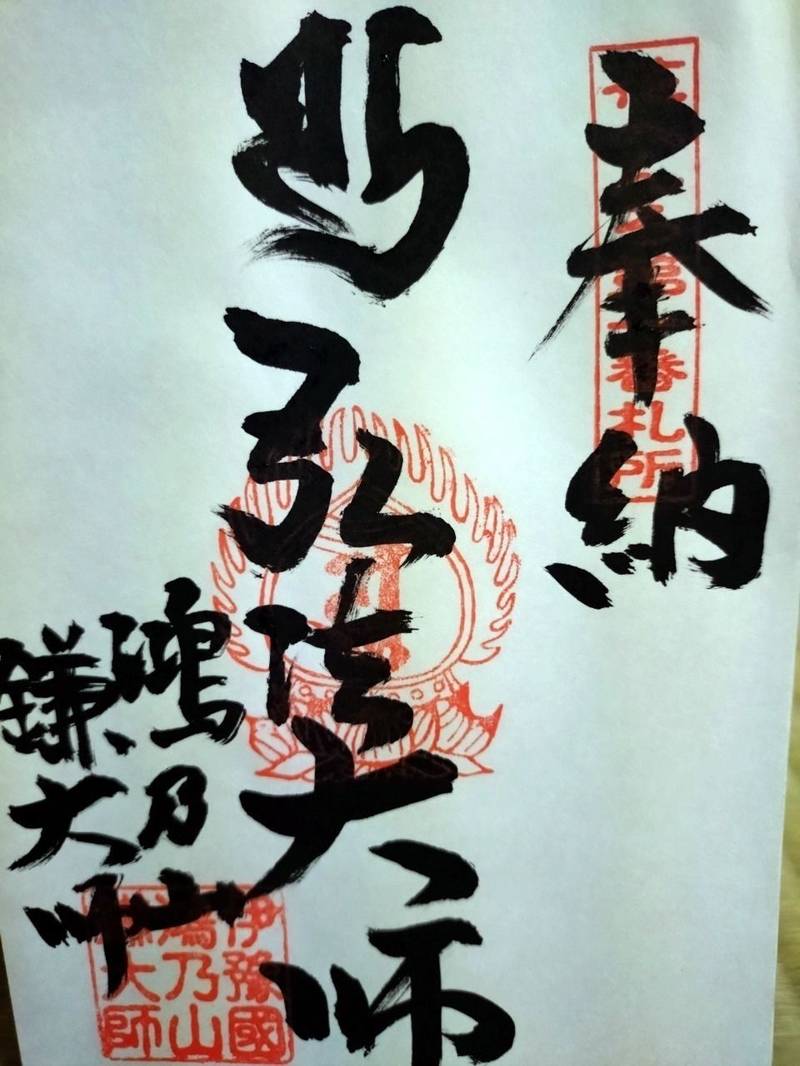 奉納
番札所
弘法大師
鴻乃山
鎌大師
伊豫國
鴻乃山
鎌大師